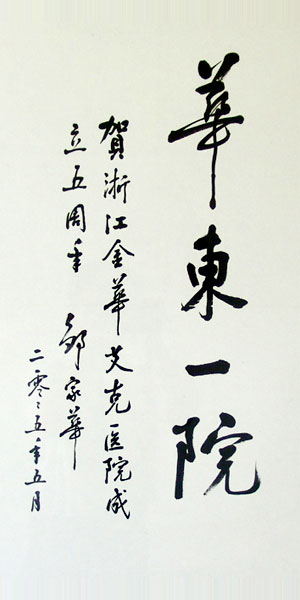 華東一院
賀浙江金華艾克医院成
立五周年 鄒家華
二零零五年五月